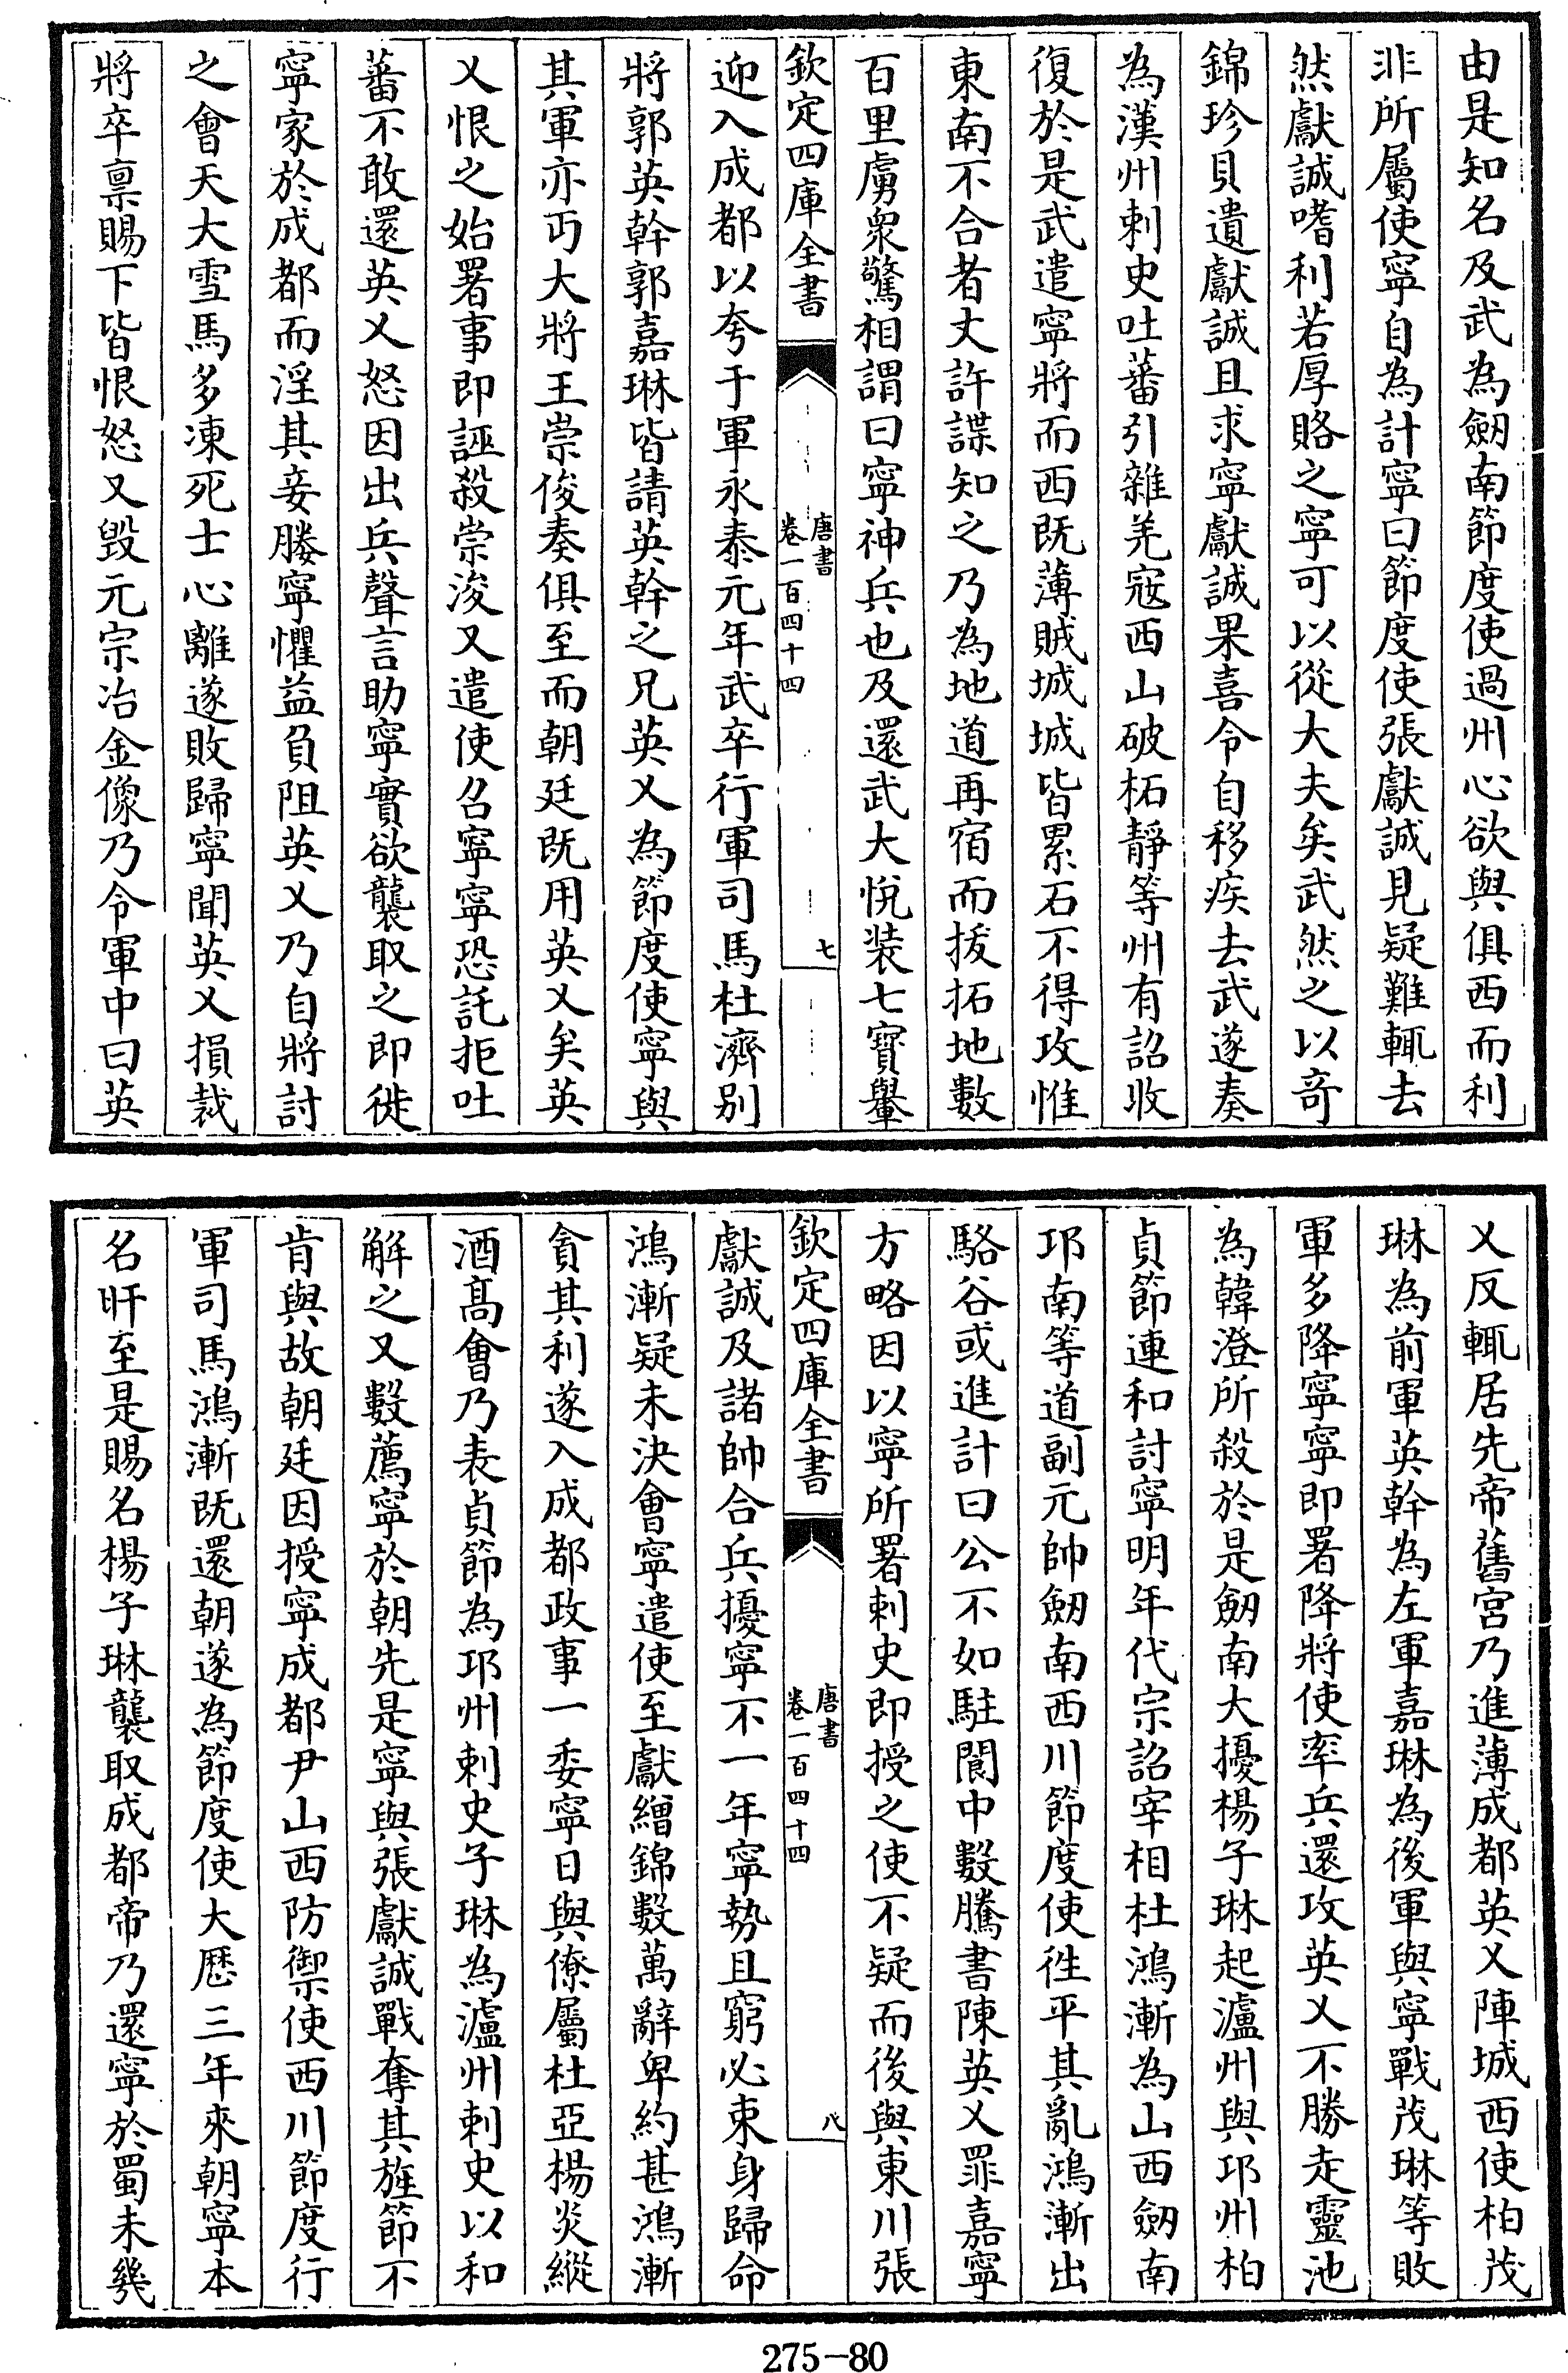 由是知名及武為劒南節度使過州心欲與俱西而利
非所屬使寧自為計寧曰節度使張獻誠見疑難輒去
然獻誠嗜利若厚賂之寧可以從大夫矣武然之以奇
錦珍貝遺獻誠且求寧獻誠果喜令自移疾去武遂奏
為漢州刺史吐蕃引雜羌寇西山破柘靜等州有詔收
復於是武遣寧將而西既薄賊城城皆累石不得攻惟
東南不合者丈許諜知之乃為地道再宿而拔拓地數
百里虜衆驚相謂曰寧神兵也及還武大悅装七寳轝
欽定四庫全書
唐書
卷一百四十四
七
迎入成都以夸于軍永泰元年武卒行軍司馬杜濟別
將郭英幹郭嘉琳皆請英幹之兄英乂為節度使寧與
其軍亦丐大將王崇俊奏俱至而朝廷既用英乂矣英
乂恨之始署事即誣殺崇浚又遣使召寧寧恐託拒吐
蕃不敢還英乂怒因出兵聲言助寧實欲襲取之即徙
寧家於成都而淫其妾媵寧懼益負阻英乂乃自將討
之會天大雪馬多凍死士心離遂敗歸寧聞英乂損裁
將卒禀賜下皆恨怒又毁元宗冶金像乃令軍中曰英
乂反輒居先帝舊宫乃進薄成都英乂陣城西使柏茂
琳為前軍英幹為左軍嘉琳為後軍與寧戰茂琳等敗
軍多降寧寧即署降將使率兵還攻英乂不勝走靈池
為韓澄所殺於是劒南大擾楊子琳起瀘州與邛州柏
貞節連和討寧明年代宗詔宰相杜鴻漸為山西劒南
邛南等道副元帥劒南西川節度使往平其亂鴻漸出
駱谷或進計曰公不如駐閬中數騰書陳英乂罪嘉寧
方略因以寧所署刺史即授之使不疑而後與東川張
欽定四庫全書
唐書
卷一百四十四
八
獻誠及諸帥合兵擾寧不一年寧勢且窮必束身歸命
鴻漸疑未決會寧遣使至獻繒錦數萬辭卑約甚鴻漸
貪其利遂入成都政事一委寧日與僚屬杜亞楊炎縱
酒高會乃表貞節為邛州刺史子琳為瀘州刺史以和
解之又數薦寧於朝先是寧與張獻誠戰奪其旌節不
肯與故朝廷因授寧成都尹山西防禦使西川節度行
軍司馬鴻漸既還朝遂為節度使大厯三年來朝寧本
名旰至是賜名楊子琳襲取成都帝乃還寧於蜀未幾
275-80